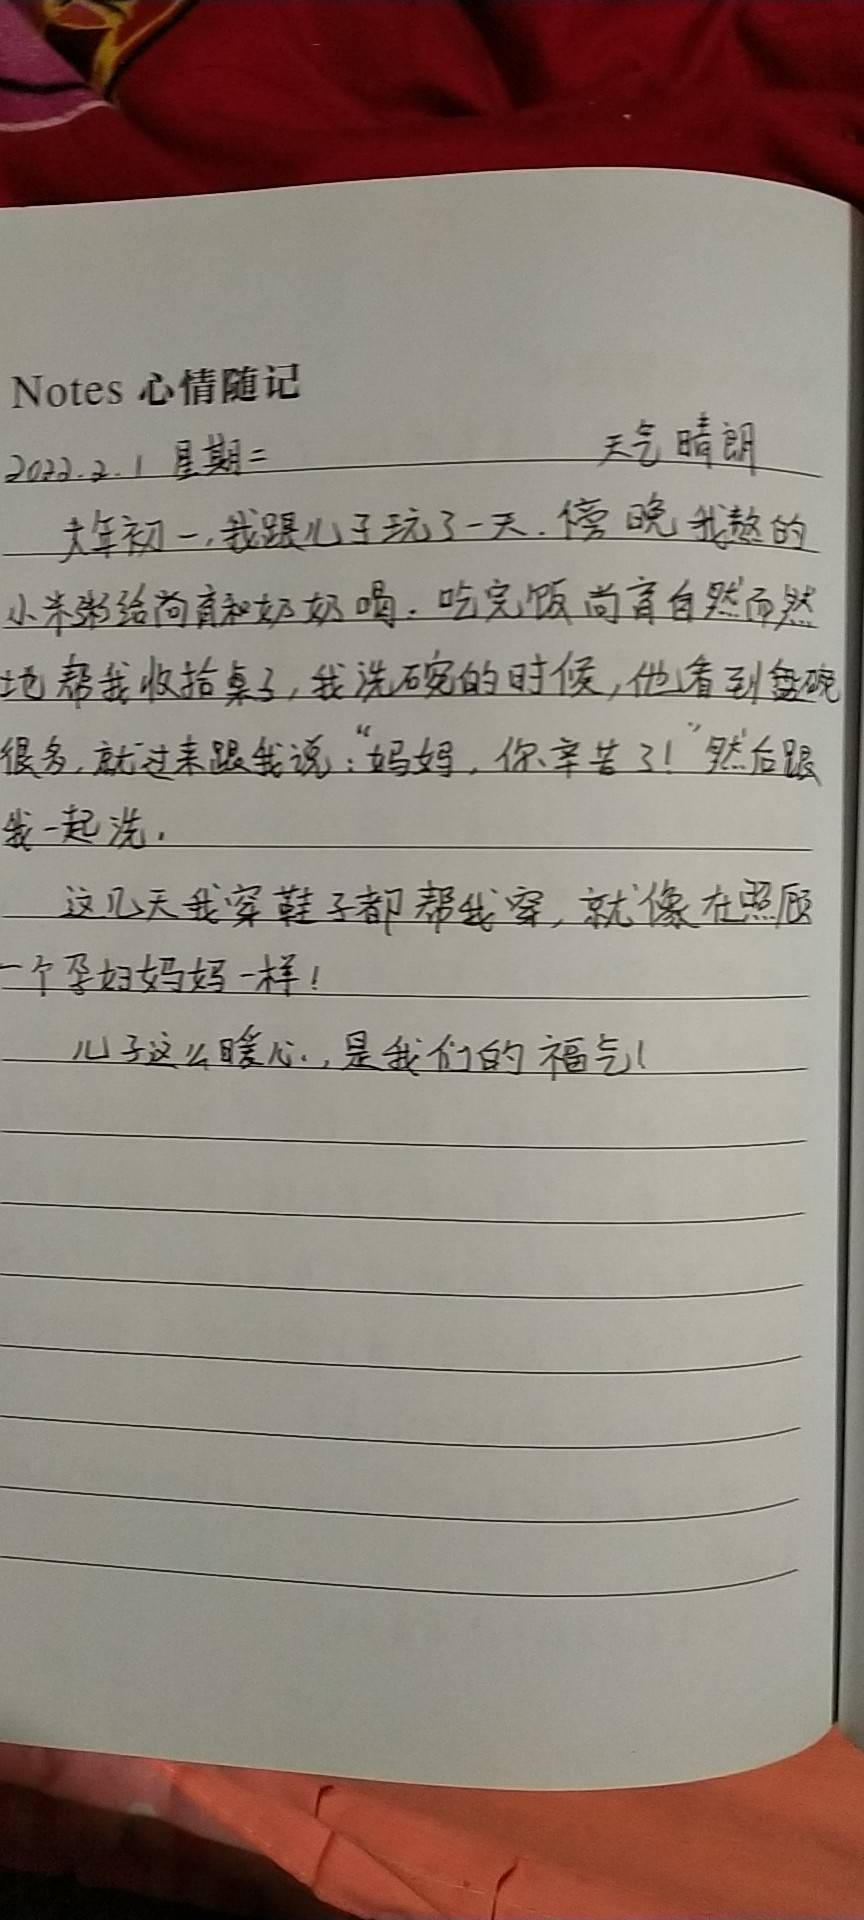 Notes 心情随记
2022.2.1 星期二 天气晴朗
大年初一,我跟儿子玩了一天.傍晚我熬的
小米粥给尚育和奶奶喝.吃完饭尚育自然而然
地帮我收拾桌子,我洗碗的时候,他看到盘碗
很多,就过来跟我说:“妈妈,你辛苦了!”然后跟
我一起洗.
这几天我穿鞋子都帮我穿,就像在照顾
一个孕妇妈妈一样!
儿子这么暖心,是我们的福气!